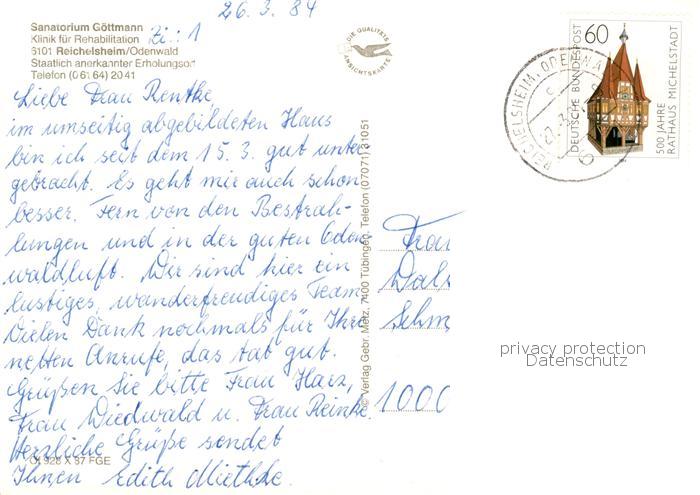 26.3.84
Sanatorium Göttmann
Klinik für Rehabilitation
Zi.: 1
6101 Reichelsheim/Odenwald
Staatlich anerkannter Erholungsort
Telefon (0 61 64) 20 41
Liebe Frau Rentke,
im umseitig abgebildeten Haus
bin ich seit dem 15.3. gut unter
gebracht. Es geht mir auch schon
besser. Fern von den Bestrah-
lungen und in der guten Oden
waldluft. Wir sind hier ein
lustiges, wanderfreudiges Team
Vielen Dank nochmals für Ihre
netten Anrufe, das tat gut.
Grüßen Sie bitte Frau Harz,
Frau Wiedwald u. Frau Reinke.
Herzliche Grüße sendet
Ihnen Edith Miethke.
928 X 87 FGE
DIE QUALITÄTS
ANSICHTSKARTE
© Verlag Gebr. Metz, 7400 Tübingen, Telefon (07071)31051
Frau
1000
60
DEUTSCHE BUNDESPOST
500 JAHRE
RATHAUS MICHELSTADT
REICHELSHEIM, ODENWA
privacy protection
Datenschutz